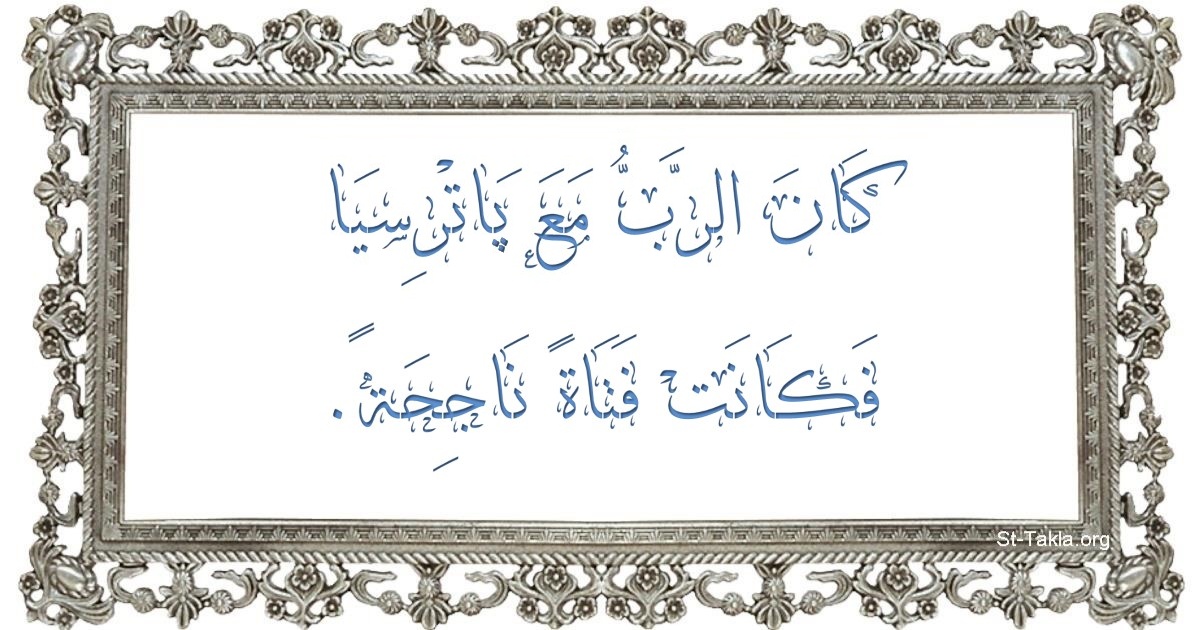 كَانَ الرَّبُّ مَعَ پَاتْرِسِيَا
فَكَانَتْ فَتَاةً نَاجِحَةً.
St-Takla.org